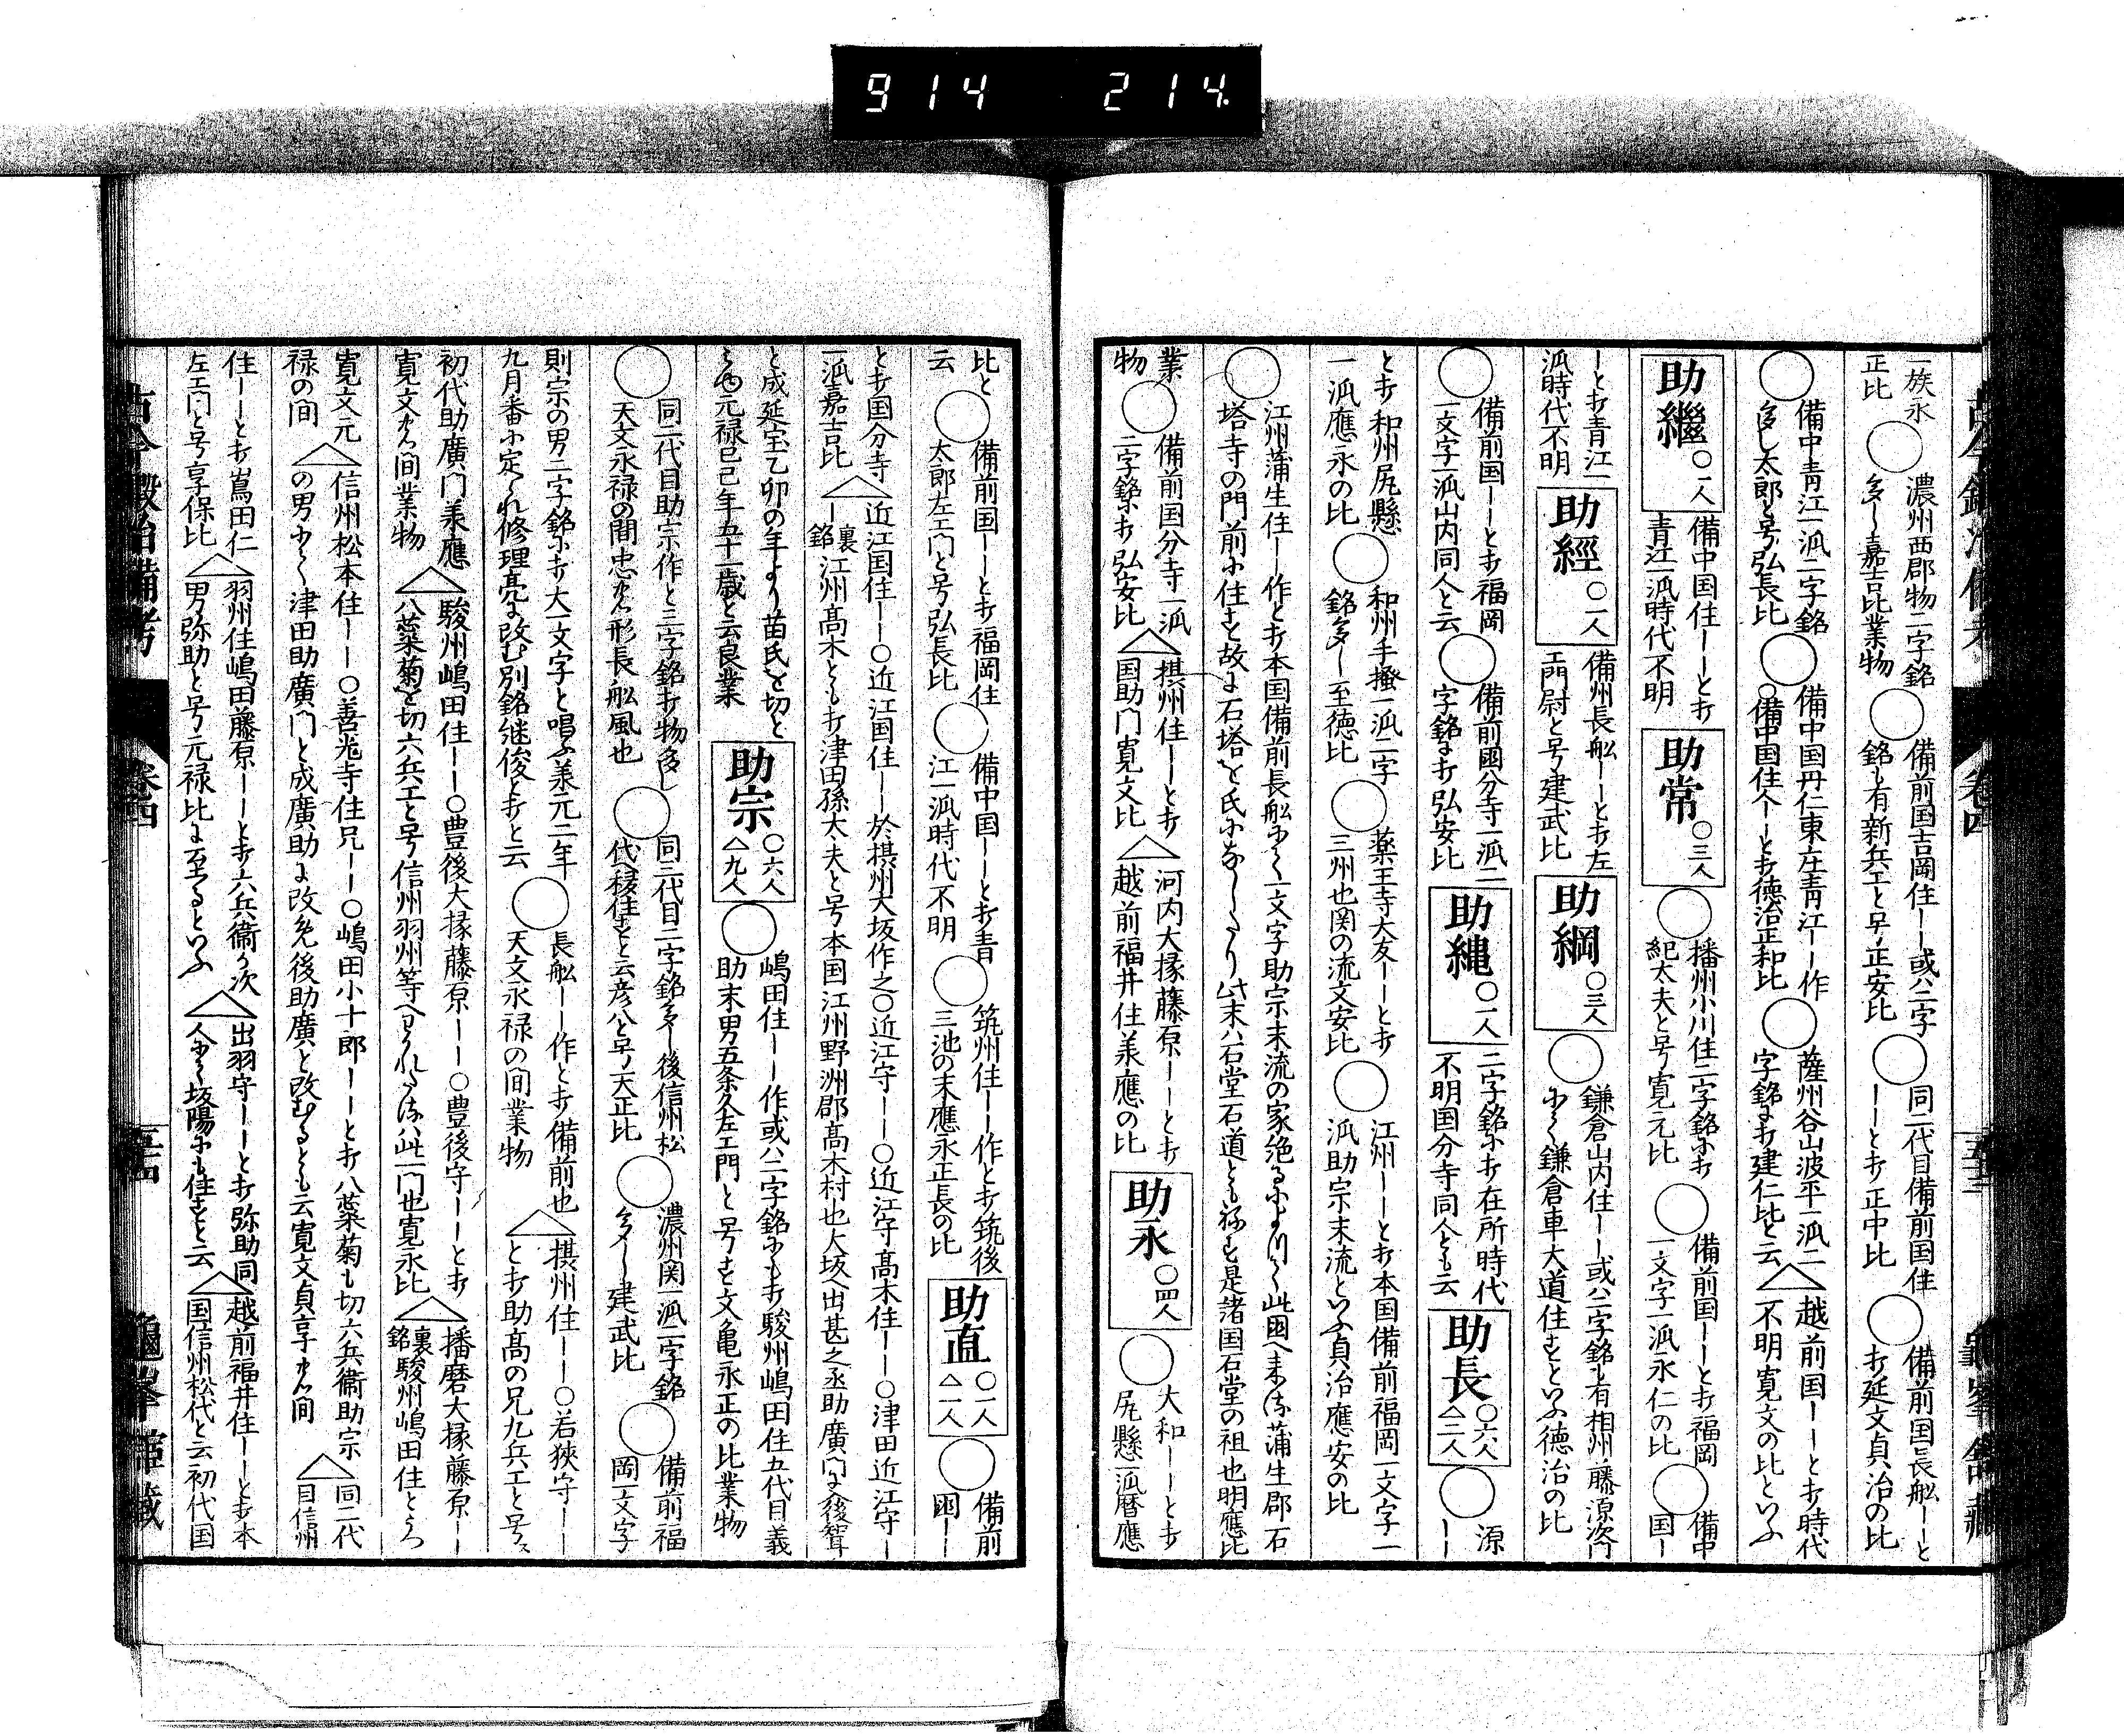 914 214.
古今鍛冶備考 卷四
一族永
正比
濃州西郡物二字銘
多し嘉吉比業物
備前国吉岡住ーー或ハ二字
銘も有新兵工と号正安比
同二代目備前国住
ーーと打正中比
備前国長船ーーと
打延文貞治の比
備中青江一派二字銘
多し太郎と号弘長比
備中国丹仁東庄青江ーー作
備中国住人ーーと打徳治正和比
薩州谷山波平一派二
字銘に打建仁比と云
越前国ーーと打時代
不明寛文の比といふ
助繼 〇一人
備中国住ーーと打
青江一派時代不明
助常 〇三人
播州小川住二字銘に打
紀太夫と号寛元比
備前国ーーと打福岡
一文字一派永仁の比
備中
国ー
ーと打青江一
派時代不明
助經 〇一人
備州長船ーーと打左
工門尉と号建武比
助綱 〇三人
鎌倉山内住ーー或ハ二字銘も有相州藤源次門
にて鎌倉車大道住すといふ徳治の比
備前国ーーと打福岡
一文字一派山内同人と云
備前國分寺一派二
字銘に打弘安比
助縄 〇一人
二字銘に打在所時代
不明国分寺同人とも云
助長 〇六人 △二人
源
ーー
と打和州尻懸
一派應永の比
和州手掻一派二字
銘多し至徳比
薬王寺大友ーーと打
三州也関の流文安比
江州ーーと打本国備前福岡一文字一
派助宗末流といふ貞治應安の比
江州蒲生住ーー作と打本国備前長船にて一文字助宗末流の家絶るによりて此国へ来る蒲生郡石
塔寺の門前に住すと故に石塔を氏になしたり此末ハ石堂石道とも称す是諸国石堂の祖也明應比
業
物
備前国分寺一派
二字銘打弘安比
摂州住ーーと打
国助門寛文比
河内大掾藤原ーーと打
越前福井住美應の比
助永 〇四人
大和ーーと打
尻懸一派暦應
比と
云
備前国ーーと打福岡住
太郎左工門と号弘長比
備中国ーーと打青
江一派時代不明
筑州住ーー作と打筑後
三池の末應永正長の比
助直 〇一人 △一人
備前
國ーー
と打国分寺
一派嘉吉比
近江国住ーー〇近江国住ーー於摂州大坂作之〇近江守ーー〇近江守髙木住ーー〇津田近江守ー
ー裏銘江州髙木とも打津田孫太夫と号本国江州野洲郡髙木村也大坂へ出甚之丞助廣門に入後聟
と成延宝乙卯の年より苗氏を切と
元禄己巳年五十一歳と云良業
助宗 〇六人 △九人
嶋田住ーー作或ハ二字銘にも打駿州嶋田住五代目義
助末男五条久左工門と号す文亀永正の比業物
同二代目助宗作と三字銘打物多し
天文永禄の間忠打形長船風也
同三代目二字銘多し後信州松
代へ移住すと云彦八と号天正比
濃州関一派二字銘
多し建武比
備前福
岡一文字
則宗の男二字銘に打大一文字と唱ふ美元二年
九月番に定られ修理亮に改む別銘継俊と打と云
長船ーー作と打備前也
天文永禄の间業物
摂州住ーー〇若狭守ーー
と打助髙の兄九兵工と号ス
初代助廣門美應
寛文打間業物
駿州嶋田住ーー〇豊後大掾藤原ーー〇豊後守ーーと打
八蘂菊を切六兵工と号信州羽州等へ打ハ此一门也寛永比
播磨大掾藤原ーー
裏銘駿州嶋田住とうつ
寛文元
禄の间
信州松本住ーー〇善光寺住兄ーー〇嶋田小十郎ーーと打八蘂菊も切六兵衞助宗
の男にて津田助廣门と成廣助に改免後助廣と改むるとも云寛文貞享打间
同二代
目信州
住ーーと打嶌田仁
左工门と号享保比
羽州住嶋田藤原ーーと打六兵衞の次
男弥助と号元禄比に至るといふ
出羽守ーーと打弥助同
人にて坂陽にも住すと云
越前福井住ーーと打本
国信州松代と云初代国
古今鍛冶備考 卷四 五十四 龜峯舘藏